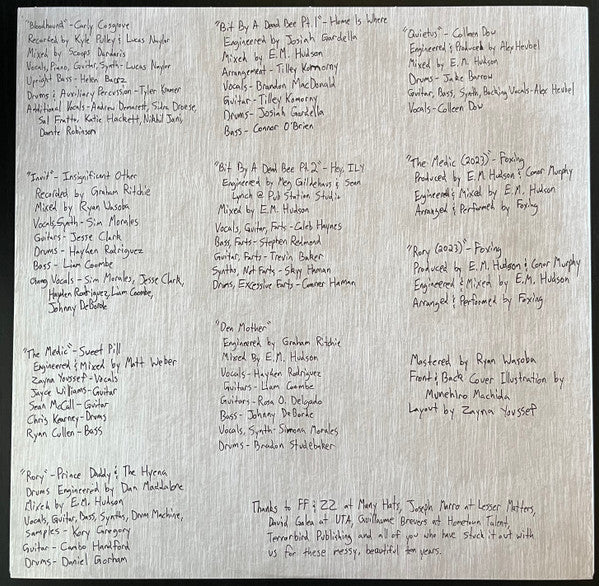 "Bloodhound" - Carly Cosgrove
Recorded by Kyle Pulley & Lucas Naylor
Mixed by Scoops Dardaris
Vocals, Piano, Guitar, Synth - Lucas Naylor
Upright Bass - Helen Barsz
Drums & Auxiliary Percussion - Tyler Kramer
Additional Vocals - Andrew Demarest, Silvia Droese,
Sal Fratto, Katie Hackett, Nikhil Jani,
Dante Robinson
"Inuit" - Insignificant Other
Recorded by Graham Ritchie
Mixed by Ryan Wasoba
Vocals, Synth - Sim Morales
Guitars - Jesse Clark
Drums - Hayden Rodriguez
Bass - Liam Coombe
Vocals - Sim Morales, Jesse Clark,
Hayden Rodriguez, Liam Coombe,
Johnny DeBorde
"The Medic" - Sweet Pill
Engineered & Mixed by Matt Weber
Zayna Youssef - Vocals
Jayce Williams - Guitar
Sean McCall - Guitar
Chris Kearney - Drums
Ryan Cullen - Bass
"Rory" - Prince Daddy & The Hyena
Drums Engineered by Dan Maddalone
Mixed by E.M. Hudson
Vocals, Guitar, Bass, Synths, Drum Machine,
Samples - Kory Gregory
Guitar - Cambo Handford
Drums - Daniel Gorham
"Bit By A Dead Bee Pt. 1" - Home Is Where
Engineered by Josiah Gardella
Mixed by E.M. Hudson
Arrangement - Tilley Komorny
Vocals - Brandon MacDonald
Guitar - Tilley Komorny
Drums - Josiah Gardella
Bass - Connor O'Brien
"Bit By A Dead Bee Pt. 2" - Hey, ILY
Engineered by Meg Gildehaus & Sean
Lynch @ Pub Station Studio
Mixed by E.M. Hudson
Vocals, Guitar, Farts - Caleb Haynes
Bass, Farts - Stephen Redmond
Guitar, Farts - Trevin Baker
Synths, Not Farts - Skyy Haman
Drums, Excessive Farts - Conner Haman
"Den Mother"
Engineered by Graham Ritchie
Mixed By E.M. Hudson
Vocals - Hayden Rodriguez
Guitars - Liam Coombe
Guitars - Rosa O. Delgado
Bass - Johnny DeBorde
Vocals, Synth - Simona Morales
Drums - Bradon Studebaker
"Quietus" - Colleen Dow
Engineered & Produced by Alex Heubel
Mixed by E.M. Hudson
Drums - Jake Barrow
Guitar, Bass, Synth, Backing Vocals - Alex Heubel
Vocals - Colleen Dow
"The Medic (2023)" - Foxing
Produced by E.M. Hudson & Conor Murphy
Engineered & Mixed by E.M. Hudson
Arranged & Performed by Foxing
"Rory (2023)" - Foxing
Produced by E.M. Hudson & Conor Murphy
Engineered & Mixed by E.M. Hudson
Arranged & Performed by Foxing
Mastered by Ryan Wasoba
Front & Back Cover Illustration by
Munehiro Machida
Layout by Zayna Youssef
Thanks to FF & ZZ at Many Hats, Joseph Marro at Lesser Matters,
David Galea at UTA, Guillaume Brevers at Hometown Talent,
Terrorbird Publishing and all of you who have stuck it out with
us for these messy, beautiful ten years.